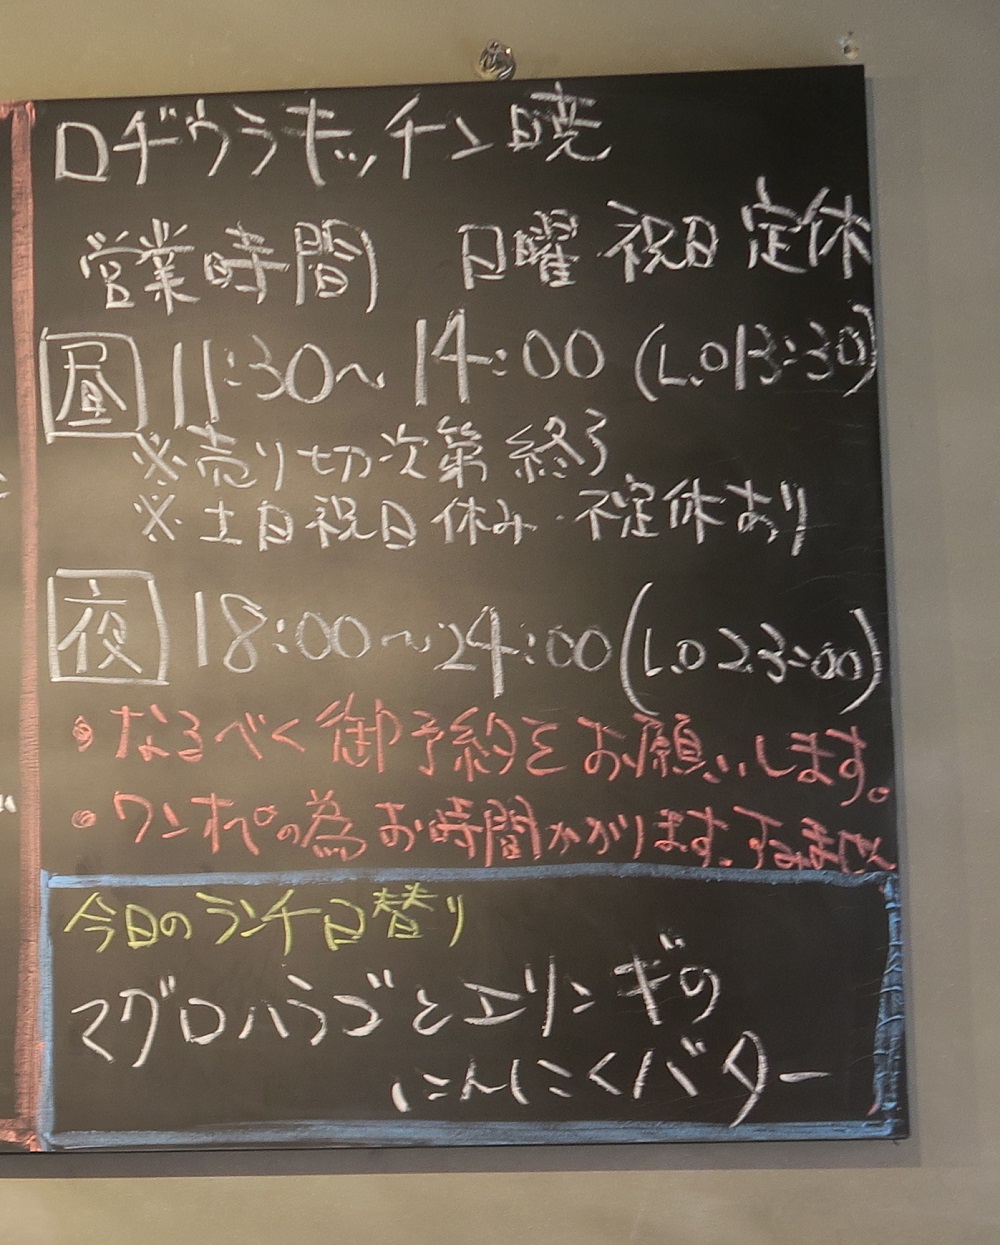 ロヂウラキッチン暁
営業時間 日曜・祝日定休
昼 11:30〜14:00 (L.O13:30)
※売り切次第終了
※土日祝日休み・不定休あり
夜 18:00〜24:00(L.O23:00)
・なるべく御予約をお願いします。
・ワンオペの為お時間かかります。すみません
今日のランチ日替り
マグロハラゴとエリンギの
にんにくバター